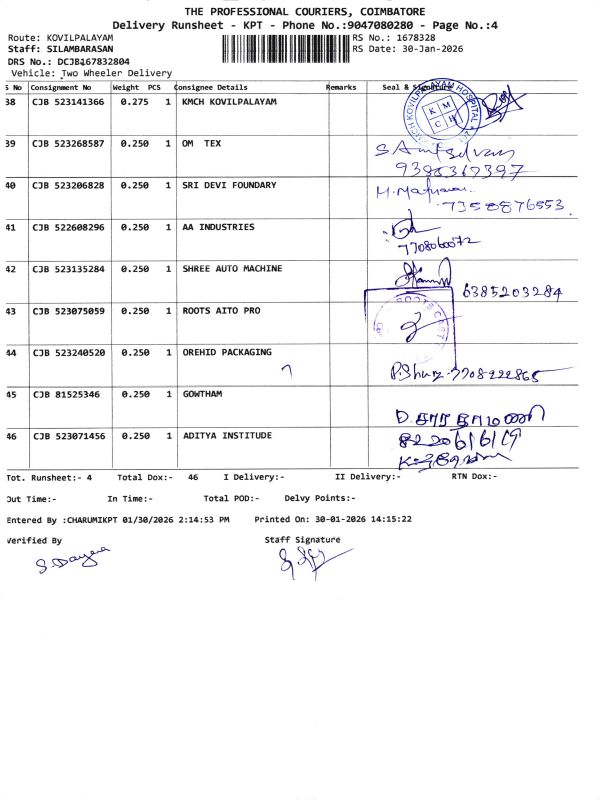 THE PROFESSIONAL COURIERS, COIMBATORE
Delivery Runsheet - KPT - Phone No.:9047080280 - Page No.:4
Route: KOVILPALAYAM RS No.: 1678328
Staff: SILAMBARASAN RS Date: 30-Jan-2026
DRS No.: DCJB167832804
Vehicle: Two Wheeler Delivery
S No Consignment No Weight PCS Consignee Details Remarks Seal & Signature
38 CJB 523141366 0.275 1 KMCH KOVILPALAYAM
39 CJB 523268587 0.250 1 OM TEX
40 CJB 523206828 0.250 1 SRI DEVI FOUNDARY
7358876553
41 CJB 522608296 0.250 1 AA INDUSTRIES
42 CJB 523135284 0.250 1 SHREE AUTO MACHINE
6385203284
43 CJB 523075059 0.250 1 ROOTS AITO PRO
44 CJB 523240520 0.250 1 OREHID PACKAGING
7708222865
45 CJB 81525346 0.250 1 GOWTHAM
46 CJB 523071456 0.250 1 ADITYA INSTITUDE
Tot. Runsheet:- 4 Total Dox:- 46 I Delivery:- II Delivery:- RTN Dox:-
Out Time:- In Time:- Total POD:- Delvy Points:-
Entered By :CHARUMIKPT 01/30/2026 2:14:53 PM Printed On: 30-01-2026 14:15:22
Verified By Staff Signature